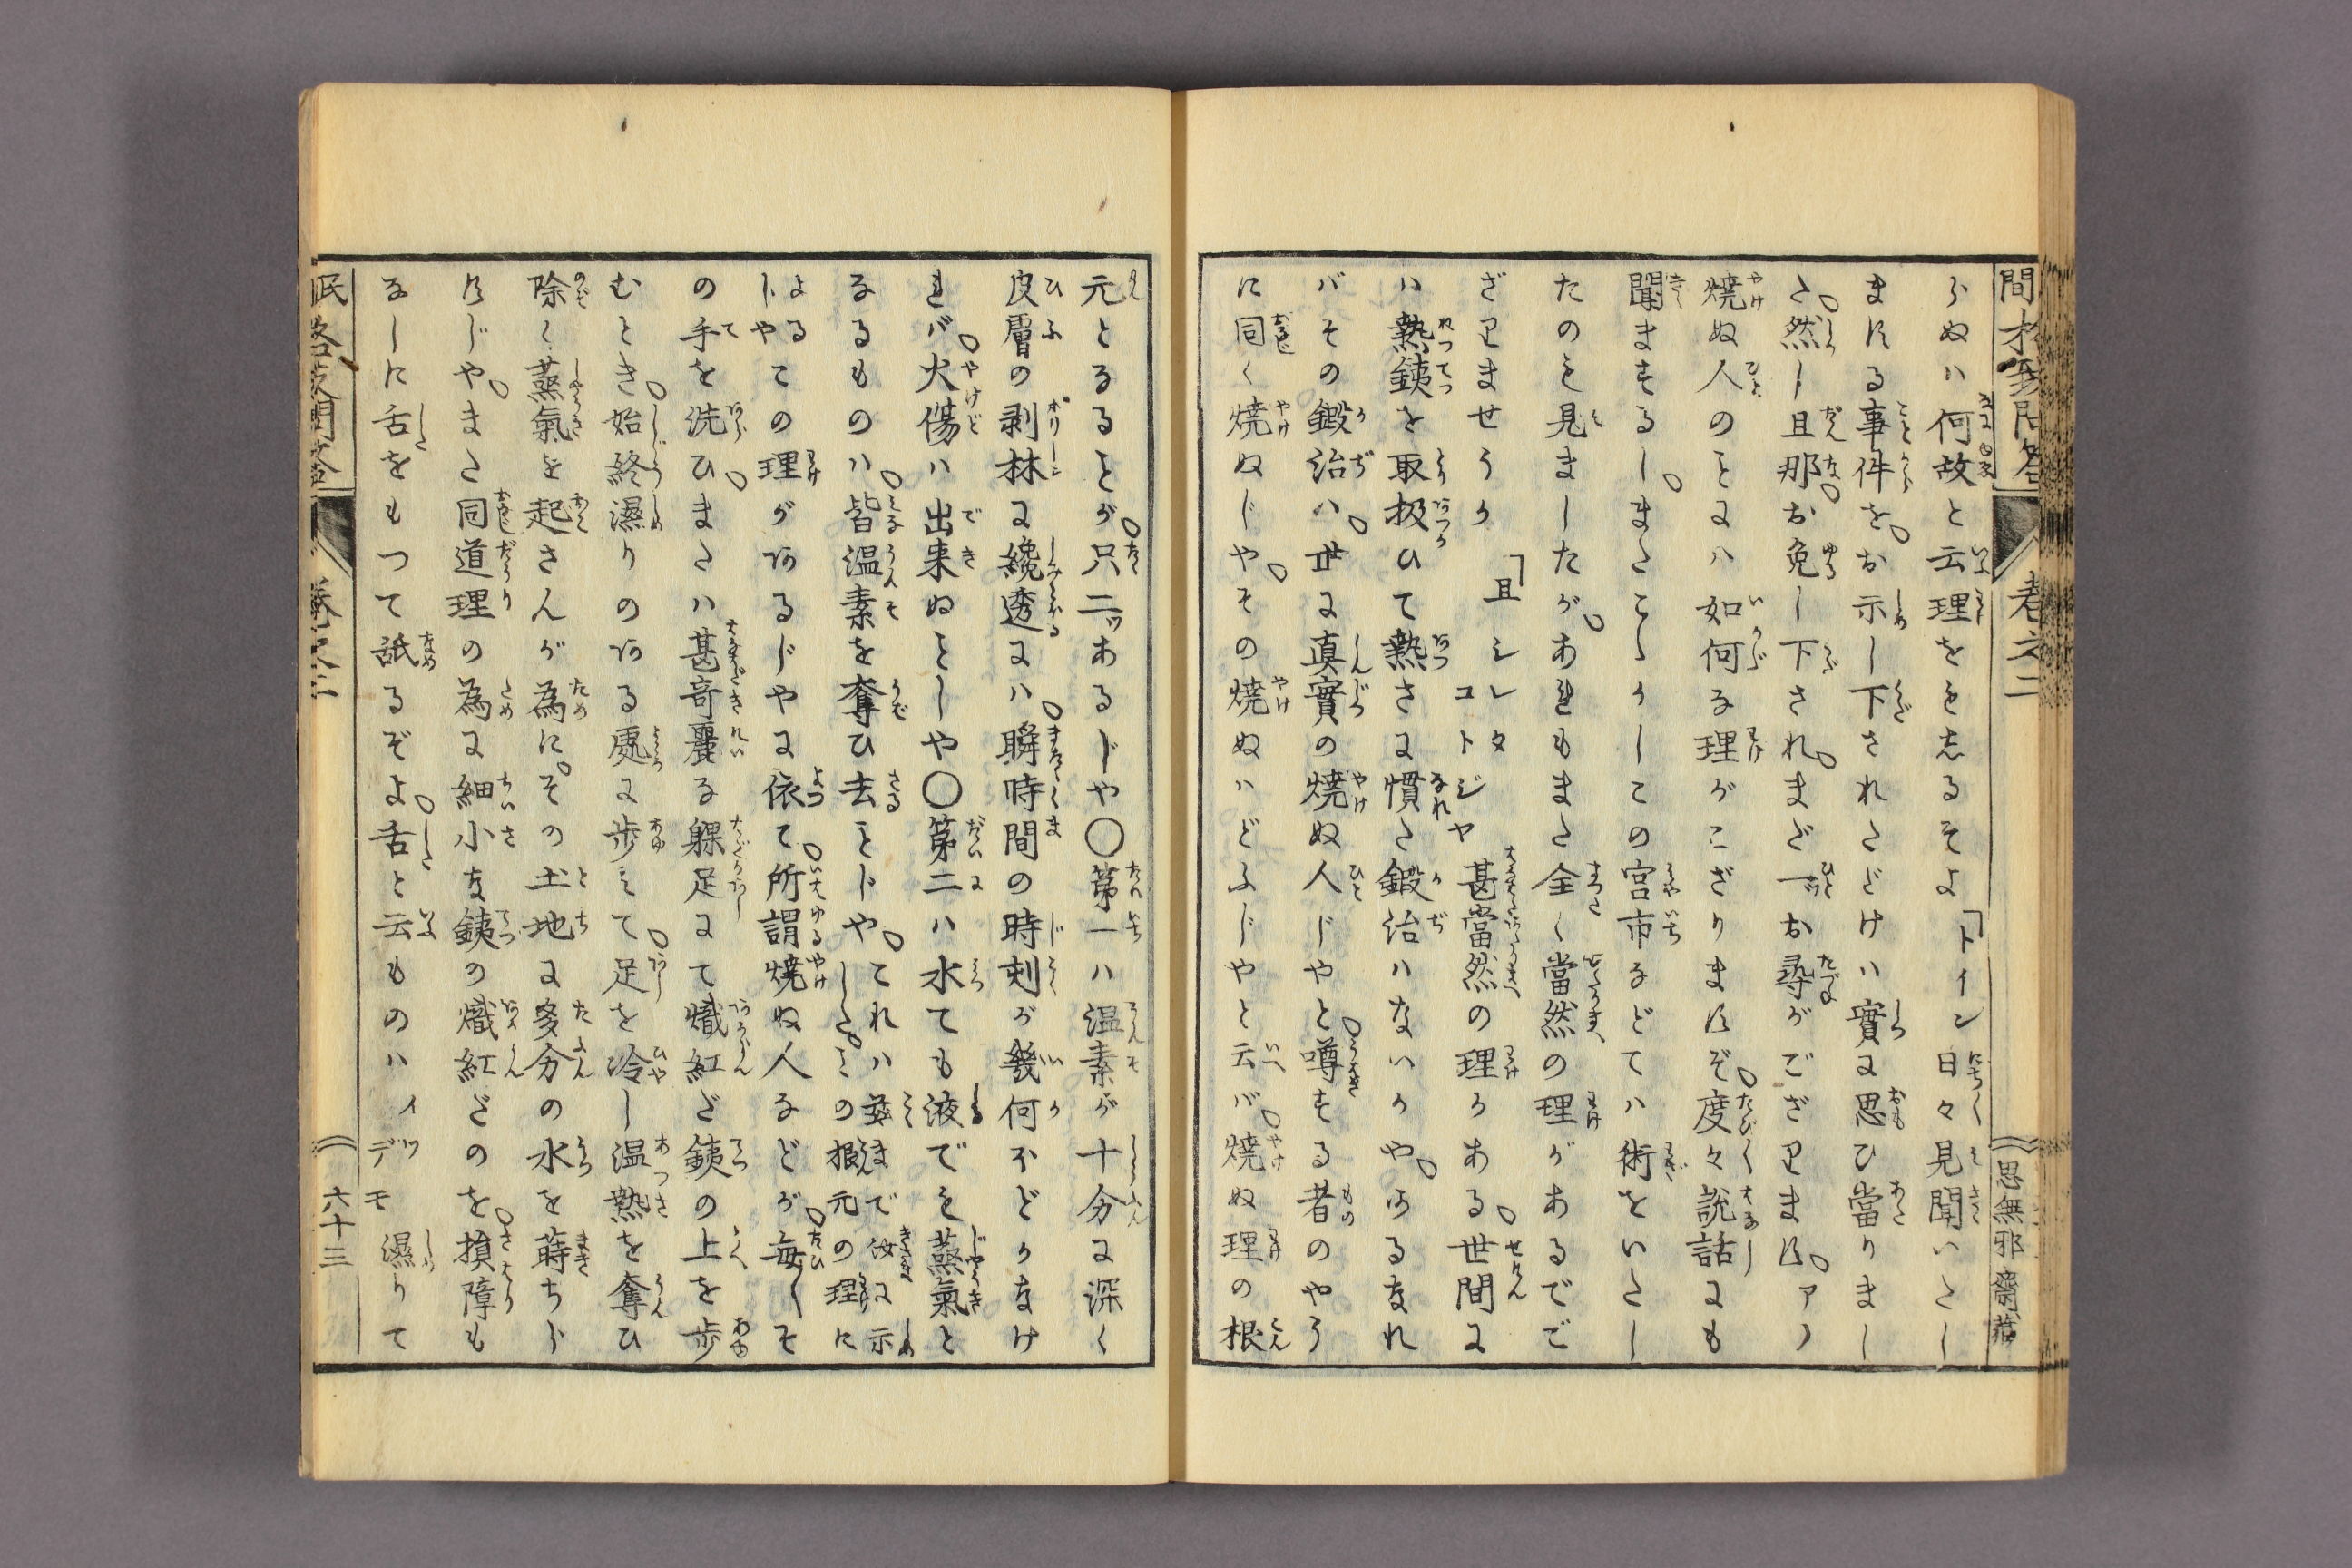 らぬハ何故と云理をもしるそよ「トイシ日々見聞いたし
まする事件をお示し下されたどけハ實に思ひ當りまし
た然し且那お免し下されまだ一ツお尋がござりますアノ
焼ぬ人のことにハ如何る理がござりますぞ度々説話にも
聞まするしまたこゝかしこの宮市などてハ術をいたし
たのを見ましたがあれもまた全く當然の理があるでご
ざりませうか「且シレタコトジヤ甚當然の理かある世間に
ハ熱鉄を取扱ひて熱さに慣た鍛冶ハないかや有るなれ
バその鍛冶ハ世に真實の焼ぬ人じやと噂する者のやう
に同く焼ぬじやその焼ぬハどふじやと云バ焼ぬ理の根
元となることが只二ツあるじや〇第一ハ温素が十分に深く
皮膚の剥林に纔透にハ瞬時間の時刻が幾何ほどかなけ
れバ火傷ハ出来ぬことじや〇第二ハ水ても液でも蒸氣と
なるものハ皆温素を奪ひ去ることじやこれハ茲まで汝に示
したことの根元の理に
よるトやこの理があるじやに依て所謂焼ぬ人などが毎くそ
の手を洗ひまたハ甚竒麗な躶足にて熾紅だ鉄の上を歩
むとき始終濕りのある處に歩みて足を冷し温熱を奪ひ
除く蒸氣を起さんが為にその土地に多分の水を蒔ちら
すじやまた同道理の為に細小な鉄の熾紅だのを損障も
なしに舌をもつて舐るぞよ舌と云ものハイツデモ濕りて
六十三
巻之二
思無邪齋藏